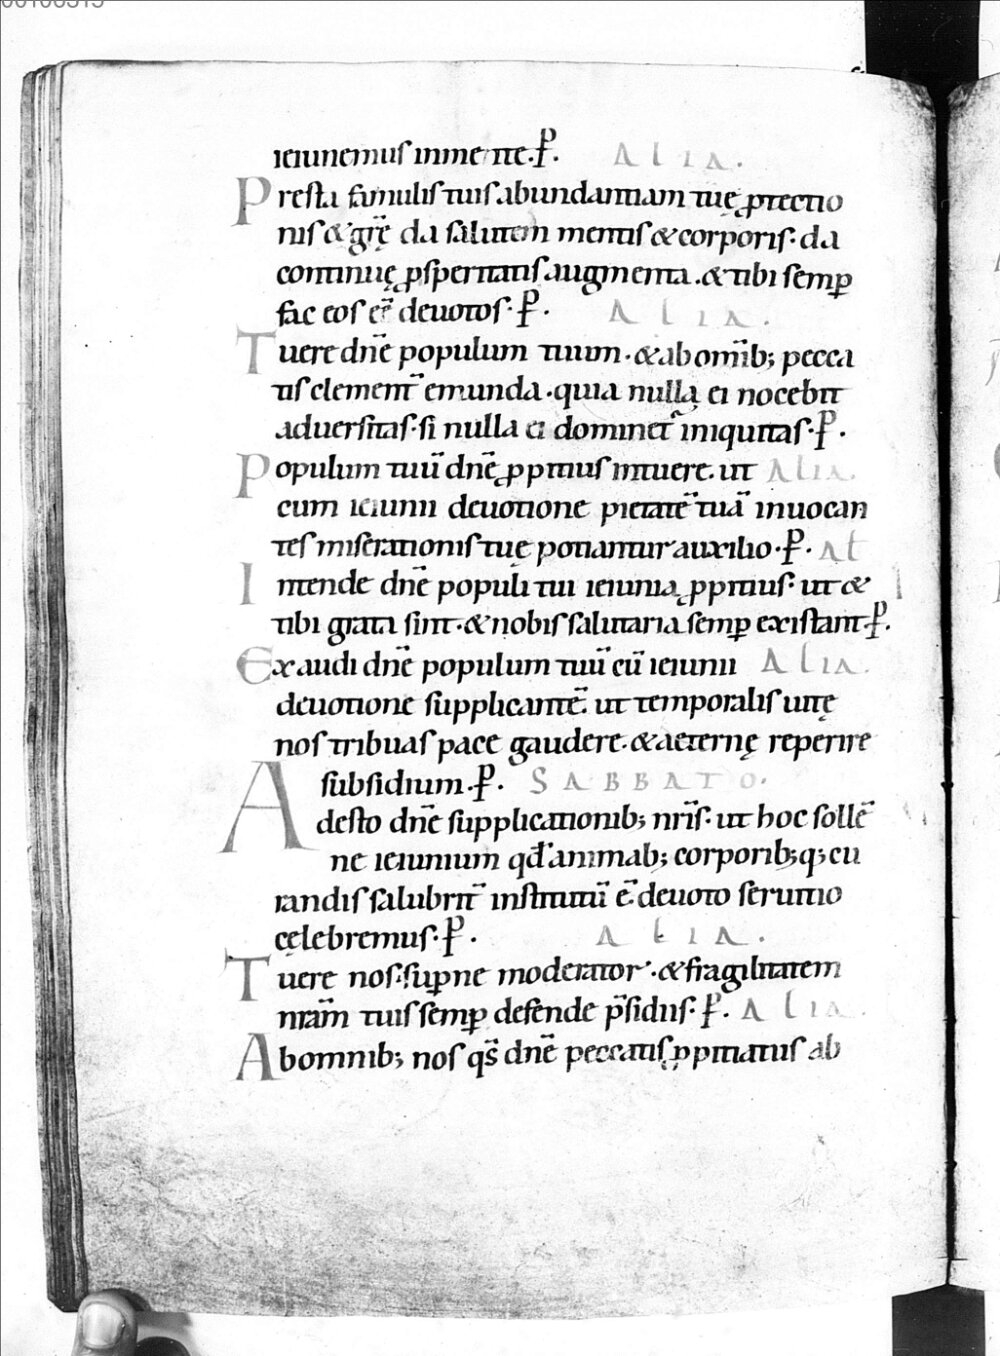 ieiunemus in mente. P̲. ALIA.
Presta famulis tuis abundantiam tuę ꝓtectio
nis & gr̄ę da salutem mentis & corporis· da
continuę ꝓsperitatis augmenta. & tibi semꝑ
fac eos eē deuotos· P̲. ALIA.
Tuere dn̄e populum tuum· & ab om̄ib; pecca
tis clement̄ emunda· quia nulla ei nocebit
aduersitas· si nulla ei dominet̄ iniquitas· P̲.
Populum tuū dn̄e ꝓpitius intuere. ut ALIA.
cum ieiunii deuotione pietatē tuā inuocan
tes miserationis tuę potiantur auxilio· P̲. AL
Intende dn̄e populi tui ieiunia ꝓpitius· ut &
tibi grata sint· & nobis salutaria semꝑ existant· P̲.
Exaudi dn̄e populum tuū cū ieiunii ALIA.
deuotione supplicantē. ut temporalis uitę
nos tribuas pace gaudere. & aeternę reperire
subsidium. P̲. SABBATO.
Adesto dn̄e supplicationib; nr̄is· ut hoc sollē
ne ieiunium qđ animab; corporib;q; cu
randis salubrit̄ institutū ē. deuoto seruitio
cęlebremus· P̲. ALIA.
Tuere nos· suꝑne moderator· & fragilitatem
nr̄am tuis semꝑ defende p̄sidiis· P̲. ALIA.
Ab omnib; nos qs̄ dn̄e peccatis ꝓpitiatus ab